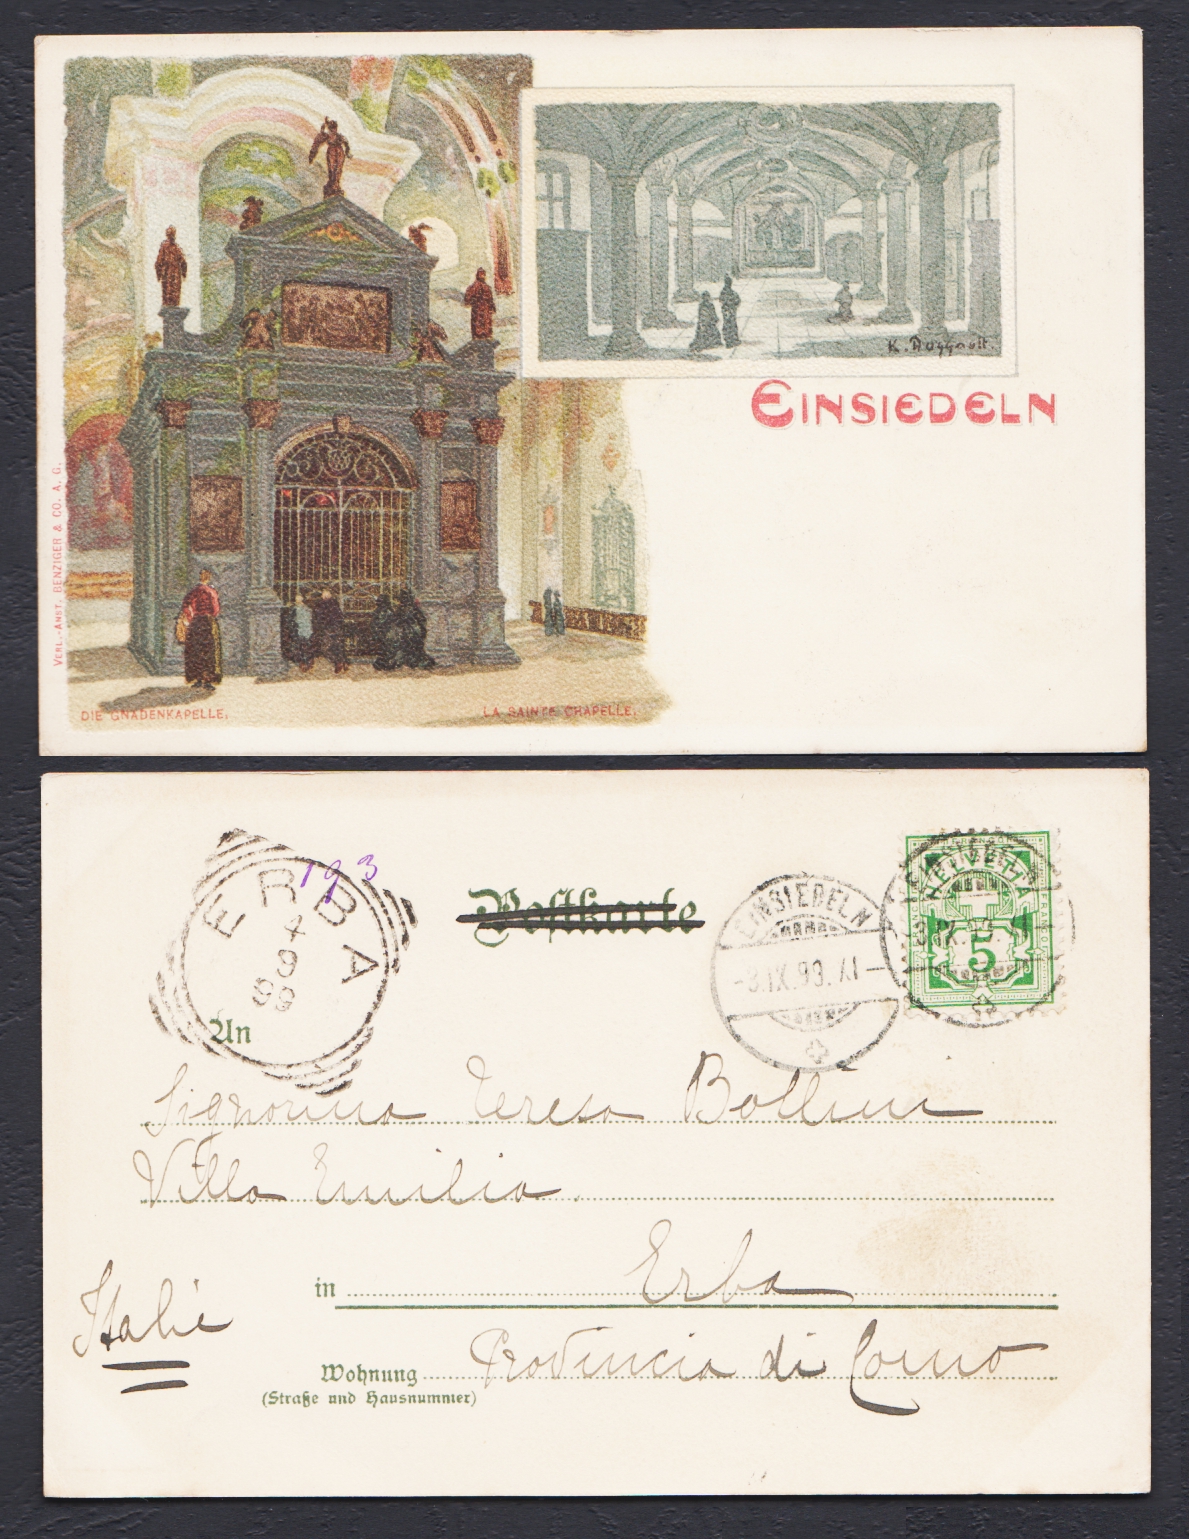 K. Roggnoll.
EINSIEDELN
VERL.-ANST. BENZIGER & CO. A. G.
DIE GNADENKAPELLE.
LA SAINTE CHAPELLE.
ERBA
4
9
99
193
Postkarte
EINSIEDELN
-3.IX.99.XI-
HELVETIA
FRANCO
5
An
Signorina Teresa Bollini
Villa Emilia.
in Erba
Italie
Wohnung Provincia di Como
(Straße und Hausnummer)